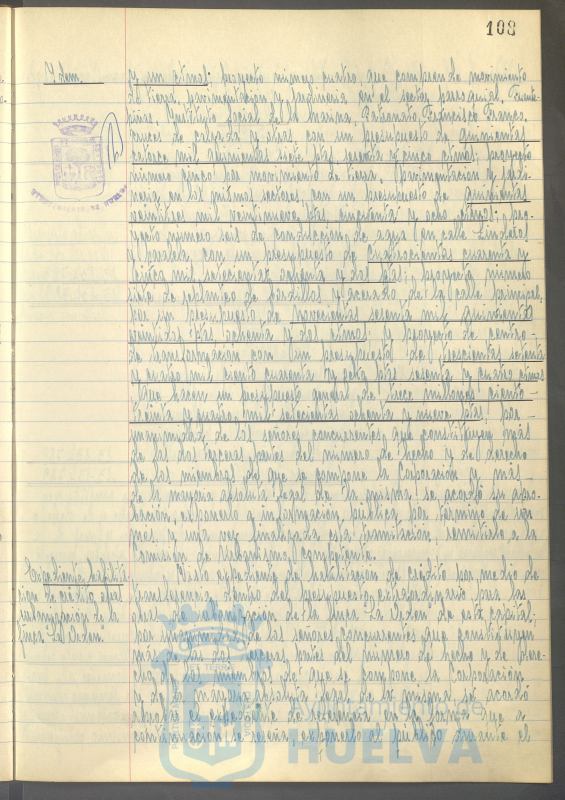 108
Idem.
y un ctmos; proyecto número cuatro, que comprende movimiento
de tierra, pavimentación y jardinería en el sector parroquial, Fuente-
piñas, Instituto Social de la Marina, Patronato Francisco Franco,
cruces de calzada y otras, con un presupuesto de quinientas
catorce mil quinientas siete ptas. setenta y cinco ctmos; proyecto
número cinco, por movimiento de tierra, pavimentación y jardi-
nería, en los mismos sectores, con un presupuesto de quinientas
veintitres mil veintinueve ptas. cincuenta y ocho ctmos; pro-
yecto número seis de conducción de agua en calle Lindetal
y paralela, con un presupuesto de cuatrocientas cuarenta y
mil setecientas ochenta y dos ptas; proyecto número
siete de de bordillos y acerado de la calle principal,
por un presupuesto de novecientas sesenta mil quinientas
ptas. ochenta y dos ctmos. y proyecto de centro-
de transformación con un presupuesto de trescientas setenta
y cuatro mil ciento cuarenta y ocho ptas. sesenta y cuatro ctmos
que hacen un presupuesto general de trece millones ciento-
treinta y cuatro mil setecientas ochenta y nueve ptas; por
unanimidad de los señores concurrentes, que constituyen más
de las dos terceras partes del número de hecho y de derecho
de los miembros de que se compone la Corporación y más-
de la mayoría absoluta legal de la misma, se acordó su apro-
bación, exponerlo a información pública por término de un
mes, y una vez finalizada esta tramitación, remitirlo a la
Comisión de Urbanismo competente.
Expediente habilita-
ción de crédito para
urbanización de la
finca "La Orden".
Visto expediente de habilitación de crédito por medio de
transferencia dentro del presupuesto extraordinario para las
obras de urbanización de la finca La Orden de esta capital;
por unanimidad de los señores concurrentes que constituyen
más de las dos terceras partes del número de hecho y de dere-
cho de los miembros de que se compone la Corporación
y de la mayoría absoluta legal de la misma, se acordó
aprobar el expediente de referencia en la forma que a
continuación se reseña, exponerlo al público durante el
Ayuntamiento de
HUELVA